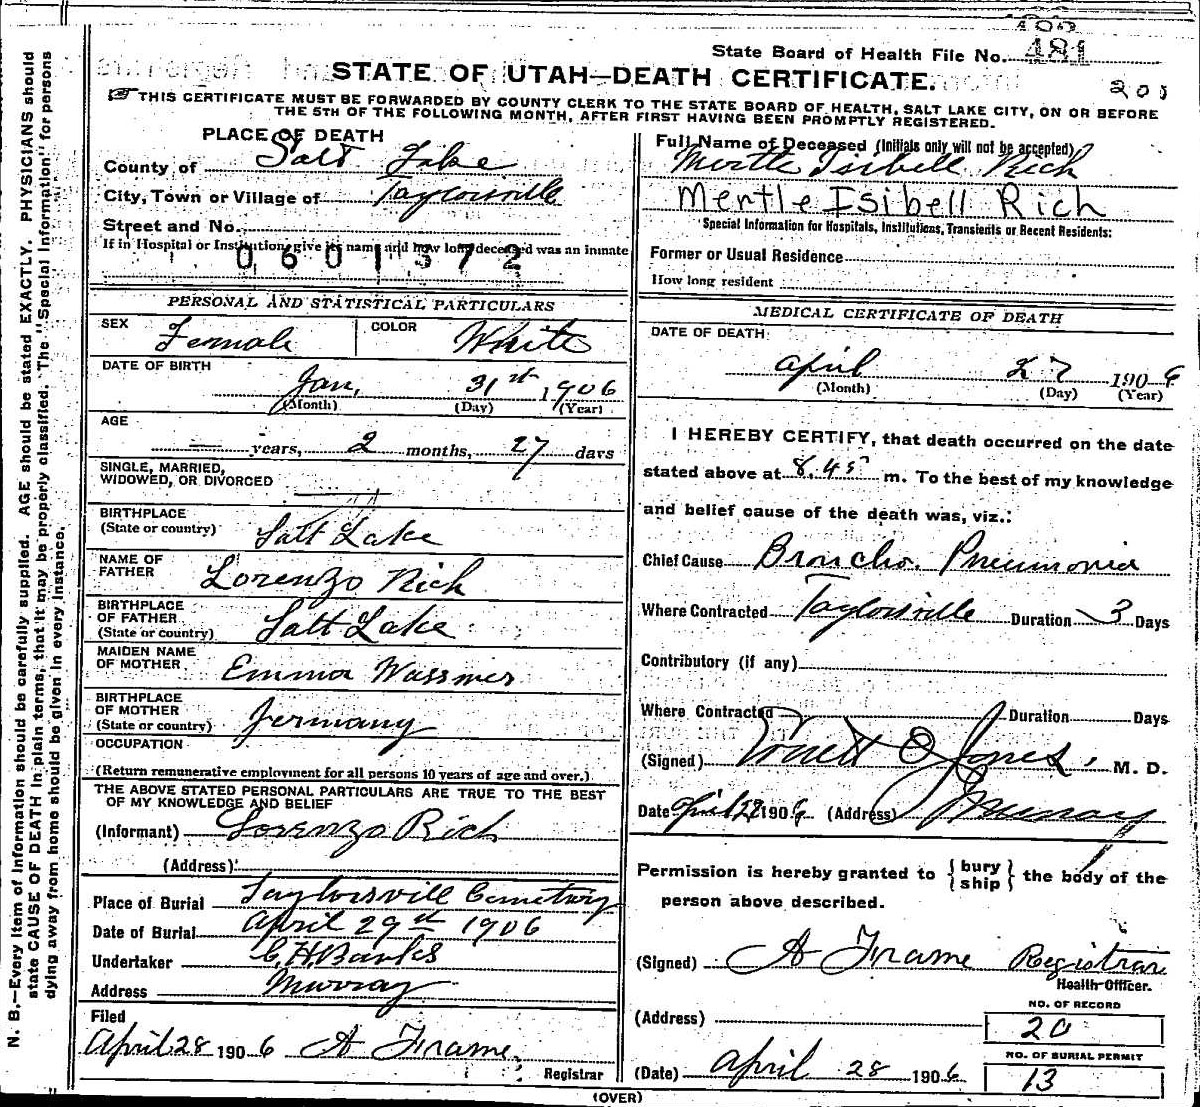 State Board of Health File No. 481
STATE OF UTAH—DEATH CERTIFICATE.
201
THIS CERTIFICATE MUST BE FORWARDED BY COUNTY CLERK TO THE STATE BOARD OF HEALTH, SALT LAKE CITY, ON OR BEFORE
THE 5TH OF THE FOLLOWING MONTH, AFTER FIRST HAVING BEEN PROMPTLY REGISTERED.
N. B.—Every item of information should be carefully supplied. AGE should be stated EXACTLY. PHYSICIANS should
state CAUSE OF DEATH in plain terms, that it may be properly classified. The "Special Information" for persons
dying away from home should be given in every instance.
PLACE OF DEATH
County of Salt Lake
City, Town or Village of Taylorsville
Street and No.
If in Hospital or Institution, give its name and how long deceased was an inmate
0601372
PERSONAL AND STATISTICAL PARTICULARS
SEX Female COLOR White
DATE OF BIRTH
Jan, 31st 1906
(Month) (Day) (Year)
AGE
years, 2 months, 27 days
SINGLE, MARRIED,
WIDOWED, OR DIVORCED
BIRTHPLACE
(State or country) Salt Lake
NAME OF
FATHER Lorenzo Rich
BIRTHPLACE
OF FATHER
(State or country) Salt Lake
MAIDEN NAME
OF MOTHER Emma Wassmer
BIRTHPLACE
OF MOTHER
(State or country) Germany
OCCUPATION
(Return remunerative employment for all persons 10 years of age and over.)
THE ABOVE STATED PERSONAL PARTICULARS ARE TRUE TO THE BEST
OF MY KNOWLEDGE AND BELIEF
(Informant) Lorenzo Rich
(Address)
Place of Burial Taylorsvill Cemetery
Date of Burial April 29th 1906
Undertaker C. H. Banks
Address Murray
Filed
April 28 1906 A Frame
Registrar
Full Name of Deceased (Initials only will not be accepted)
Mertle Isibell Rich
Mertle Isibell Rich
Special Information for Hospitals, Institutions, Transients or Recent Residents:
Former or Usual Residence
How long resident
MEDICAL CERTIFICATE OF DEATH
DATE OF DEATH:
April 27 1906
(Month) (Day) (Year)
I HEREBY CERTIFY, that death occurred on the date
stated above at 8.45 m. To the best of my knowledge
and belief cause of the death was, viz.:
Chief Cause Broncho. Pneumonia
Where Contracted Taylorsville Duration 3 Days
Contributory (if any)
Where Contracted Duration Days
(Signed) O Jones, M. D.
Date April 28 1906 (Address) Murray
Permission is hereby granted to { bury
ship } the body of the
person above described.
(Signed) A Frame Registrar
Health Officer.
(Address)
NO. OF RECORD
20
NO. OF BURIAL PERMIT
13
(Date) April 28 1906
(OVER)